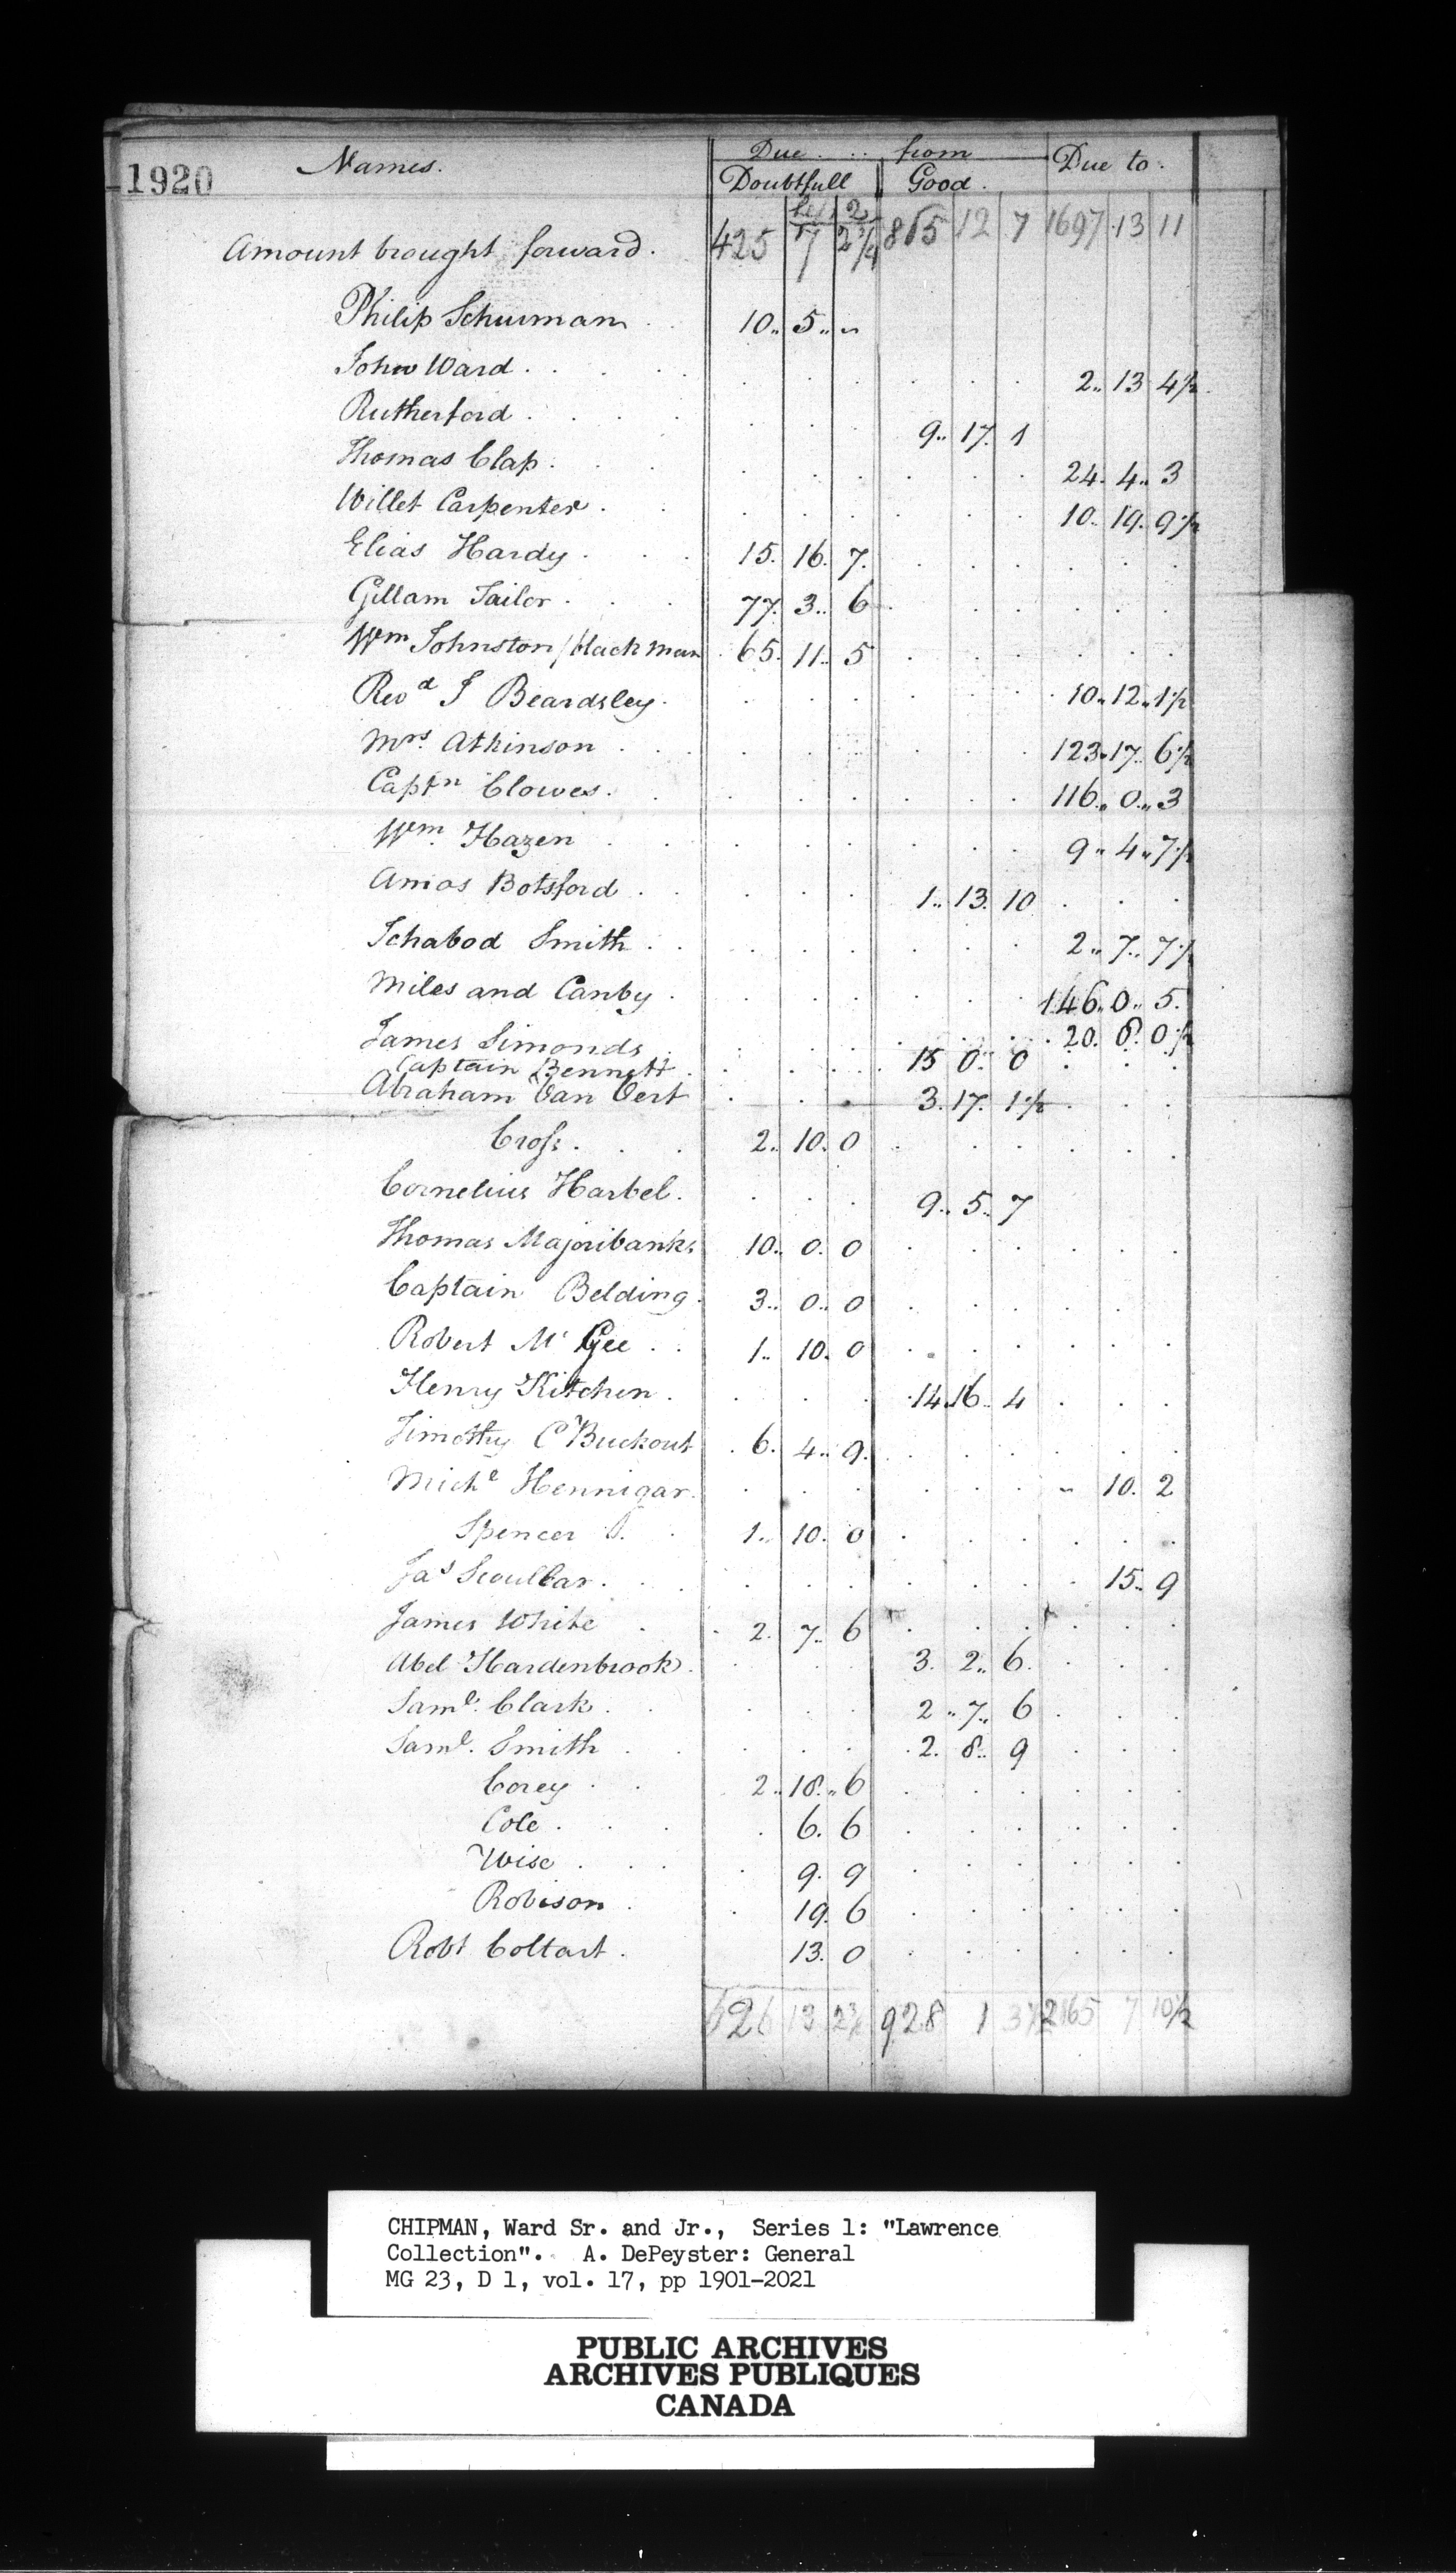 1920 Names. Due from Due to.
Doubtfull Good.
Amount brought forward. 425 7 2 3/4 865 12 7 1697 13 11
Philip Schurman 10.. 5.. ~
John Ward 2.. 13 4 1/2
Rutherford 9.. 17. 1
Thomas Clap. 24. 4.. 3
Willet Carpenter 10.. 19. 9 1/2
Elias Hardy 15. 16. 7.
Gillam Tailor 77. 3.. 6
Wm Johnston / black man 65. 11.. 5
Revd J Beardsley. 10.. 12.. 1 1/2
Mrs. Atkinson 123.. 17. 6 1/2
Captn Clowes. 116.. 0.. 3
Wm. Hazen 9.. 4.. 7 1/2
Amos Botsford 1.. 13. 10
Ichabod Smith 2.. 7.. 7 1/2
Miles and Canby 146. 0.. 5.
James Simonds 20. 8. 0 1/2
Captain Bennett 15 0.. 0
Abraham Van Vert 3. 17. 1 1/2
Cross. 2.. 10. 0
Cornelius Harbel. 9.. 5.. 7
Thomas Majoribanks 10.. 0. 0
Captain Belding. 3.. 0.. 0
Robert Mc Gee 1.. 10. 0
Henry Kitchen 14. 16.. 4
Timothy C Buckout 6. 4.. 9.
Michl Hennigar. ~ 10. 2
Spencer 1.. 10. 0
Jas Scoullar. 15.. 9
James White 2. 7.. 6
Abel Hardenbrook. 3. 2.. 6.
Saml. Clark. 2.. 7.. 6
Saml. Smith 2. 8.. 9
Corey 2.. 18.. 6
Cole 6. 6
Wise 9. 9
Robison 19. 6
Robt Coltart. 13. 0
626 13 2 3/4 928 1 3 1/2 2165 7 10 1/2
CHIPMAN, Ward Sr. and Jr., Series 1: "Lawrence
Collection". A. DePeyster: General
MG 23, D 1, vol. 17, pp 1901-2021
PUBLIC ARCHIVES
ARCHIVES PUBLIQUES
CANADA